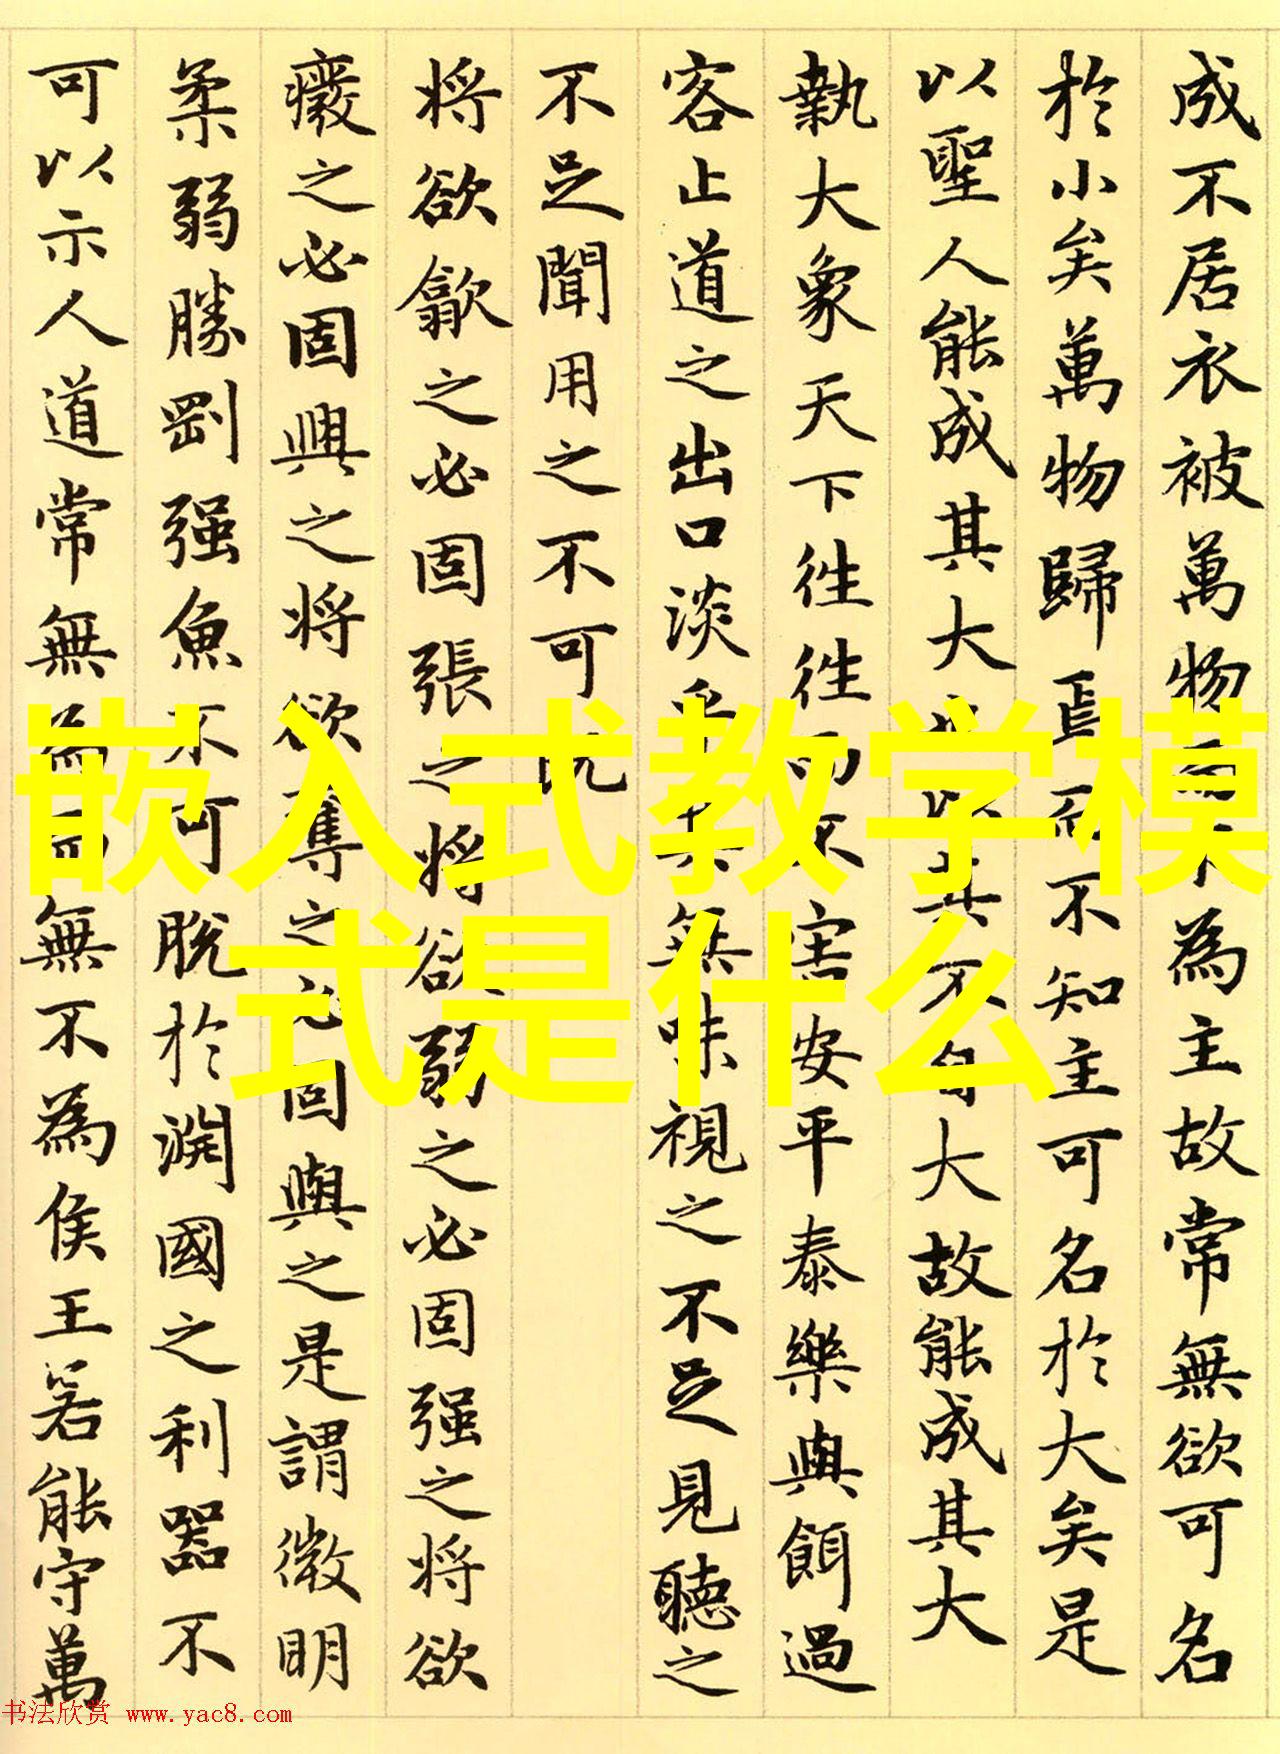 成不居衣被萬物而不為主故常無欲可名
於小矣萬物歸焉而不知主可名於大矣是
以聖人能成其大也以其不自大故能成其大
執大象天下往往而不害安平泰樂與餌過
客止道之出口淡乎其無味視之不足見聽之
不足聞用之不可既
將欲歙之必固張之將欲弱之必固强之將欲
癈之必固興之將欲奪之必固與之是謂微明
柔弱勝剛强魚不可脫於淵國之利器不
可以示人道常無為而無不為侯王若能守萬
嵌入式教学模
式是什么
书法欣赏 www.yac8.com